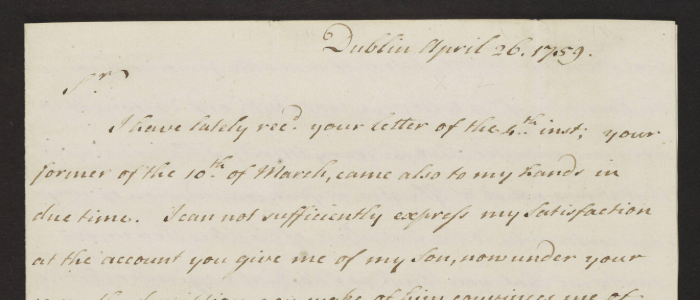 Dublin April 26. 1759.
Sr.
I have lately recd. your letter of the 4th. inst; your
former of the 10th. of March, came also to my hands in
due time. I can not sufficiently express my Satisfaction
at the account you give me of my Son, now under your
you make of him convinces me of